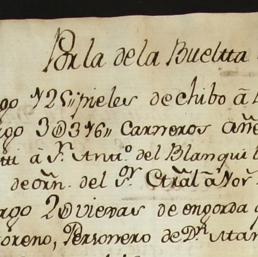 Por la de la Bueltta
go 725" pieles de chibo a
ago 3D376" Carneros añe
tti à Sr. Anto. del Blanqui
de orn. del Sr. Ctral à Nor
ago 2D vienas de engorda
oreno, Personero de Dn.